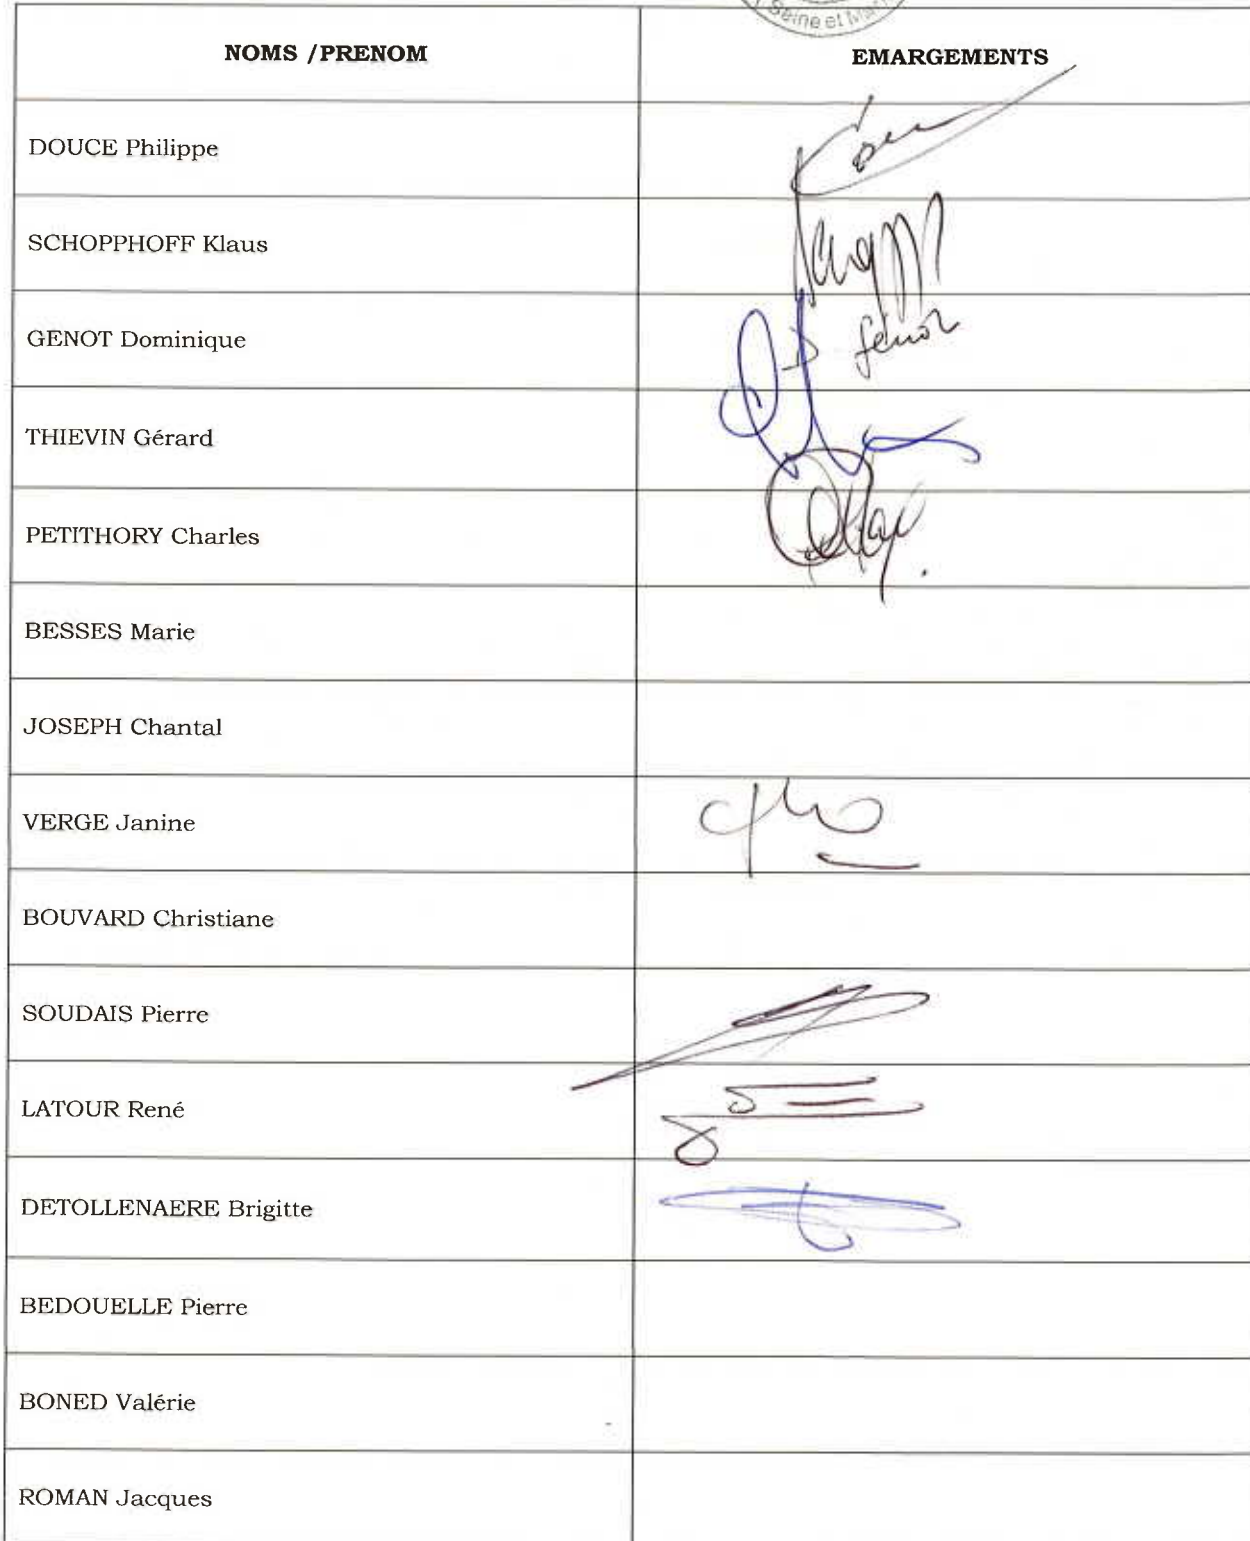 Seine et Mar
NOMS /PRENOM
EMARGEMENTS
DOUCE Philippe
SCHOPPHOFF Klaus
GENOT Dominique
D Génot
THIEVIN Gérard
PETITHORY Charles
BESSES Marie
JOSEPH Chantal
VERGE Janine
BOUVARD Christiane
SOUDAIS Pierre
LATOUR René
DETOLLENAERE Brigitte
BEDOUELLE Pierre
BONED Valérie
ROMAN Jacques